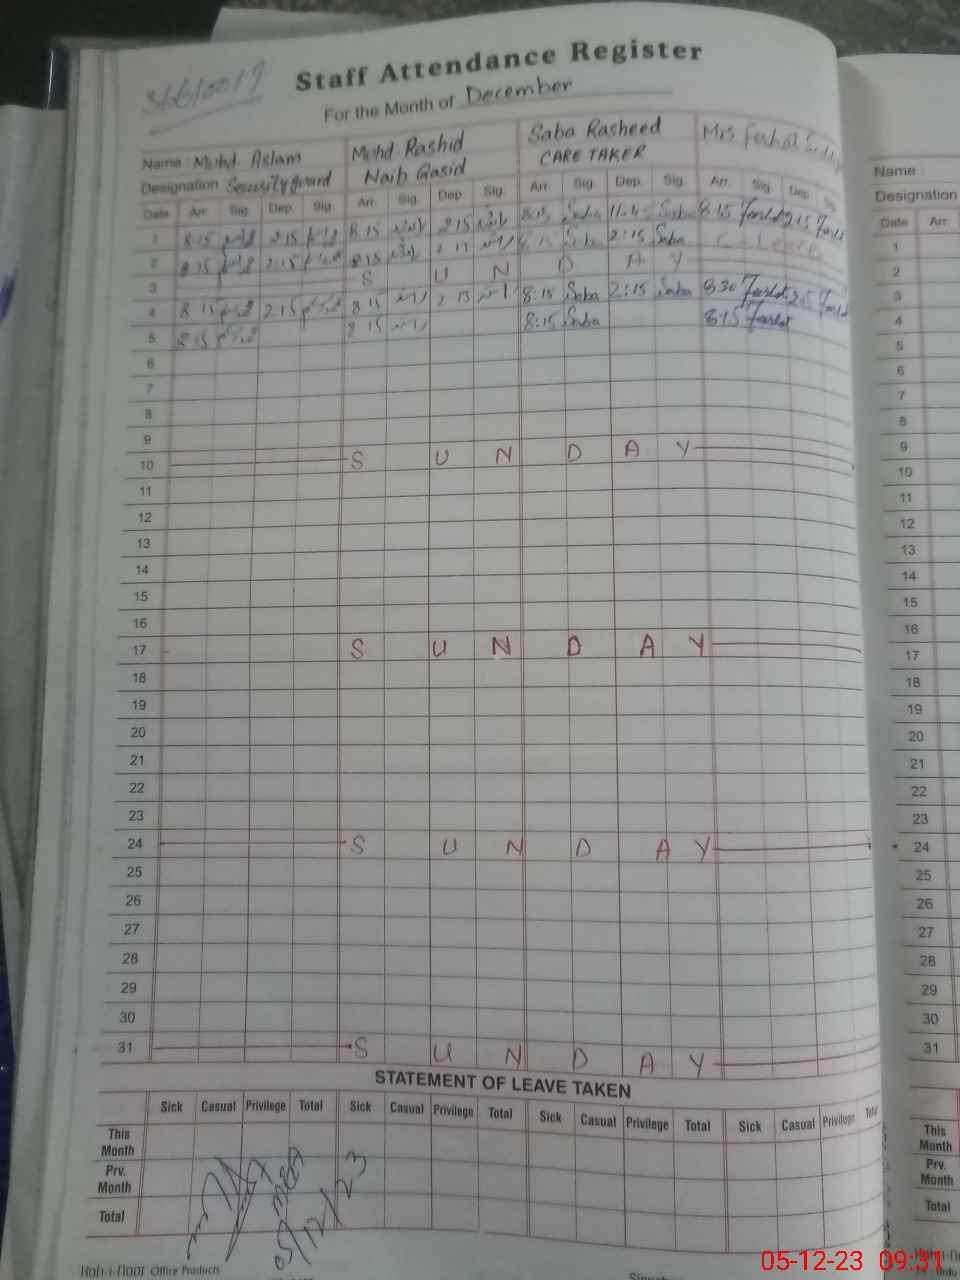 36610019
Staff Attendance Register
For the Month of December
Name : Mohd Aslam Mohd Rashid Saba Rasheed Mrs Farhat
Designation Security guard Naib Qasid CARE TAKER
Date Arr. Sig. Dep. Sig. Arr. Sig. Dep. Sig. Arr. Sig. Dep. Sig. Arr. Sig. Dep. Sig.
1 8.15 2.15 8.15 2.15 8:15 Saba 11.45 Saba 8.15 Farhat 2.15 Farhat
2 8.15 2.15 8.15 2.15 8:15 Saba 2:15 Saba C-Leave
3 S U N D A Y
4 8.15 2.15 8.15 2.15 8:15 Saba 2:15 Saba 8.30 Farhat 2.15 Farhat
5 8.15 8.15 8:15 Saba 8.15 Farhat
6
7
8
9
10 S U N D A Y
11
12
13
14
15
16
17 S U N D A Y
18
19
20
21
22
23
24 S U N D A Y
25
26
27
28
29
30
31 S U N D A Y
STATEMENT OF LEAVE TAKEN
Sick Casual Privilege Total Sick Casual Privilege Total Sick Casual Privilege Total Sick Casual Privilege Total
This Month
Prv. Month
Total
05/12/23
Koh-i-noor Office Products
Name :
Designation
Date Arr.
1
2
3
4
5
6
7
8
9
10
11
12
13
14
15
16
17
18
19
20
21
22
23
24
25
26
27
28
29
30
31
This Month
Prv. Month
Total
05-12-23 09:31